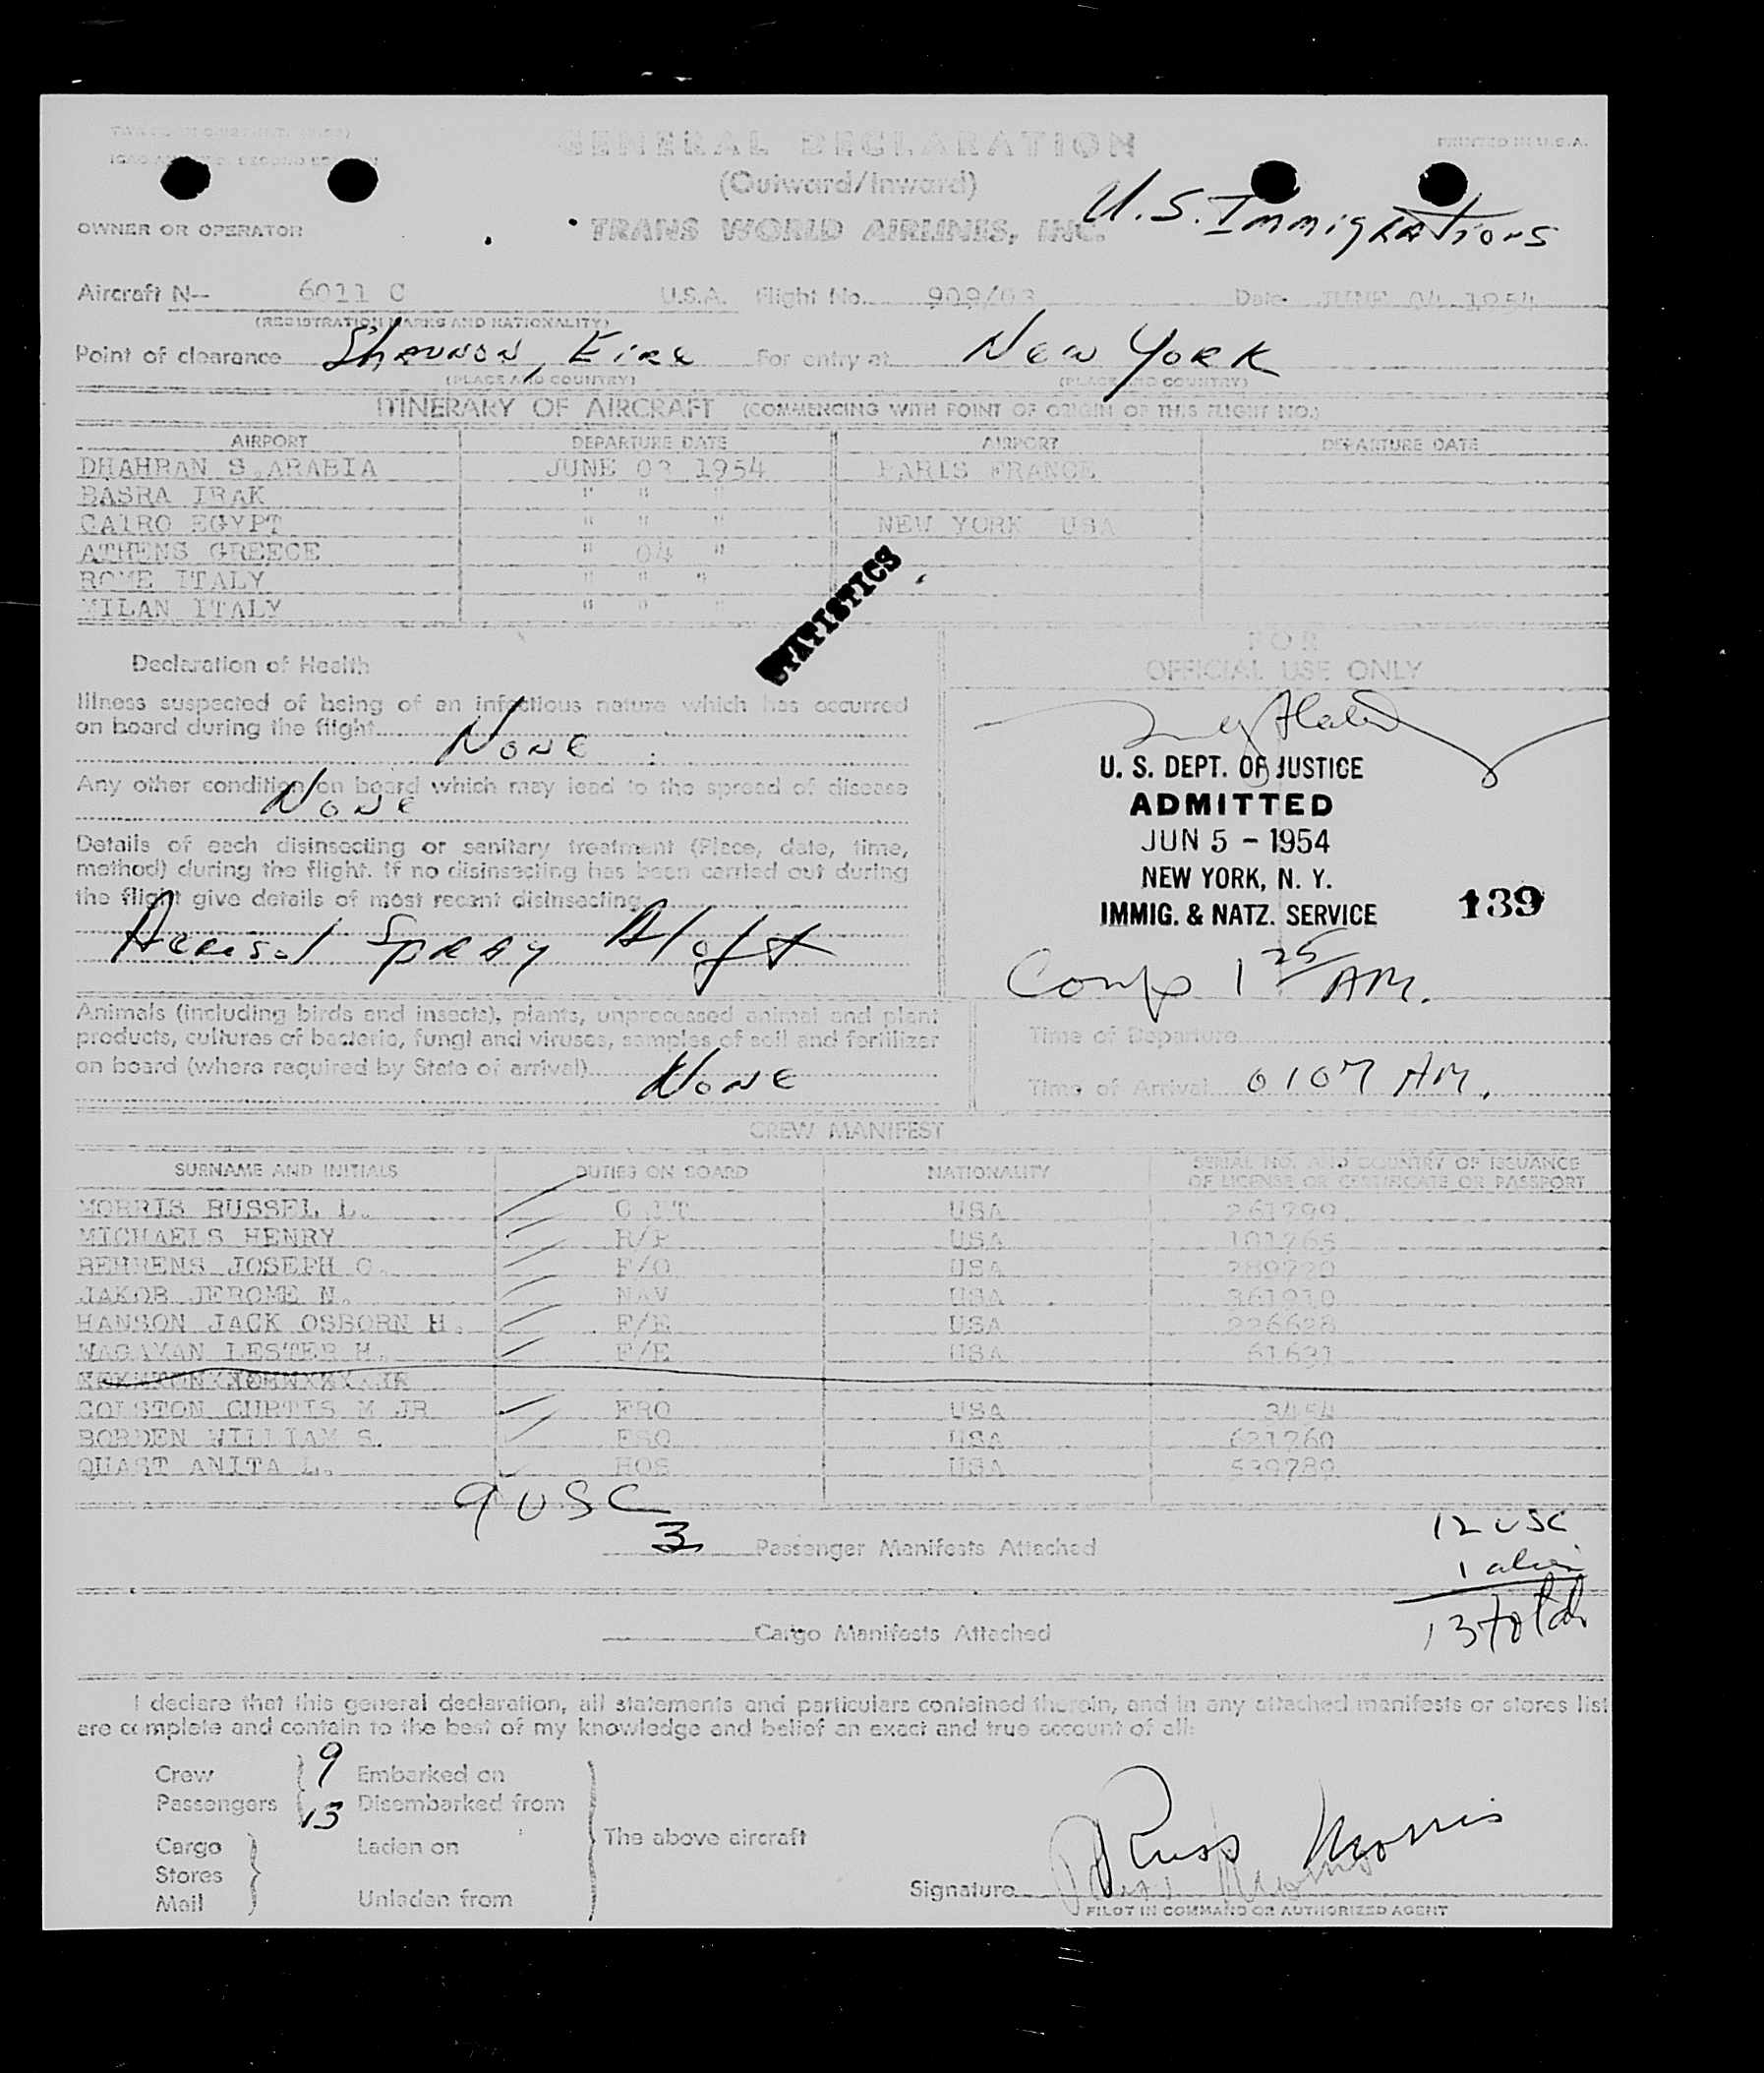 GENERAL DECLARATION
PRINTED IN U.S.A.
(Outward/Inward)
U.S. Immigrations
OWNER OR OPERATOR
TRANS WORLD AIRLINES, INC.
Aircraft N-- 6011 C U.S.A. Flight No. 909/03 Date JUNE 04 1954
(REGISTRATION MARKS AND NATIONALITY)
Point of clearance Shannon, Eire For entry at New York
(PLACE AND COUNTRY) (PLACE AND COUNTRY)
ITINERARY OF AIRCRAFT (COMMENCING WITH POINT OF ORIGIN OF THIS FLIGHT NO.)
AIRPORT DEPARTURE DATE AIRPORT DEPARTURE DATE
DHAHRAN S.ARABIA JUNE 03 1954 PARIS FRANCE
BASRA IRAK " " "
CAIRO EGYPT " " " NEW YORK USA
ATHENS GREECE " 04 "
ROME ITALY " " "
MILAN ITALY " " "
STATISTICS
Declaration of Health
FOR
OFFICIAL USE ONLY
Illness suspected of being of an infectious nature which has occurred
on board during the flight
None
Any other condition on board which may lead to the spread of disease
None
Details of each disinsecting or sanitary treatment (Place, date, time,
method) during the flight. If no disinsecting has been carried out during
the flight give details of most recent disinsecting
Aerisol Spray Aloft
U. S. DEPT. OF JUSTICE
ADMITTED
JUN 5 - 1954
NEW YORK, N. Y.
IMMIG. & NATZ. SERVICE
139
Comp 1 25 AM.
Animals (including birds and insects), plants, unprocessed animal and plant
products, cultures of bacteria, fungi and viruses, samples of soil and fertilizer
on board (where required by State of arrival) None
Time of Departure
Time of Arrival 0107 AM.
CREW MANIFEST
SURNAME AND INITIALS DUTIES ON BOARD NATIONALITY SERIAL NO. AND COUNTRY OF ISSUANCE
OF LICENSE OR CERTIFICATE OR PASSPORT
MORRIS RUSSEL L. USA 261299
MICHAELS HENRY USA 101265
BEHRENS JOSEPH O. F/O USA
JAKOB JEROME N. NAV USA 361910
HANSON JACK OSBORN H. F/E USA 226628
LESTER H. F/E USA 61631
COLSTON CURTIS M JR USA 3454
BORDEN WILLIAM S. USA 621760
QUAST ANITA L. HOS USA 539789
9 USC
3 Passenger Manifests Attached
12 USC
1 alien
13 total
Cargo Manifests Attached
I declare that this general declaration, all statements and particulars contained therein, and in any attached manifests or stores list
are complete and contain to the best of my knowledge and belief an exact and true account of all:
Crew 9 Embarked on
Passengers 13 Disembarked from
Cargo Laden on The above aircraft
Stores
Mail Unladen from
Signature Russ Morris
PILOT IN COMMAND OR AUTHORIZED AGENT